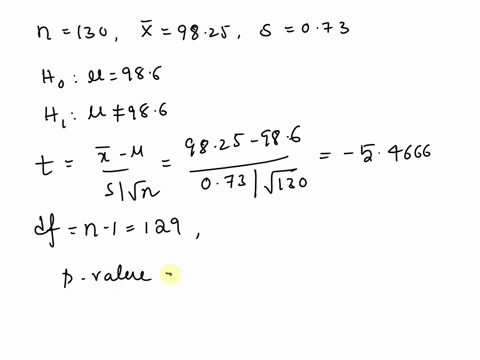 n = 130, x̄ = 98.25, s = 0.73
H₀ : μ = 98.6
H₁ : μ ≠ 98.6
t = x̄ - μ / s/√n = 98.25 - 98.6 / 0.73/√130 = -5.4666
df = n-1 = 129,
p-value -